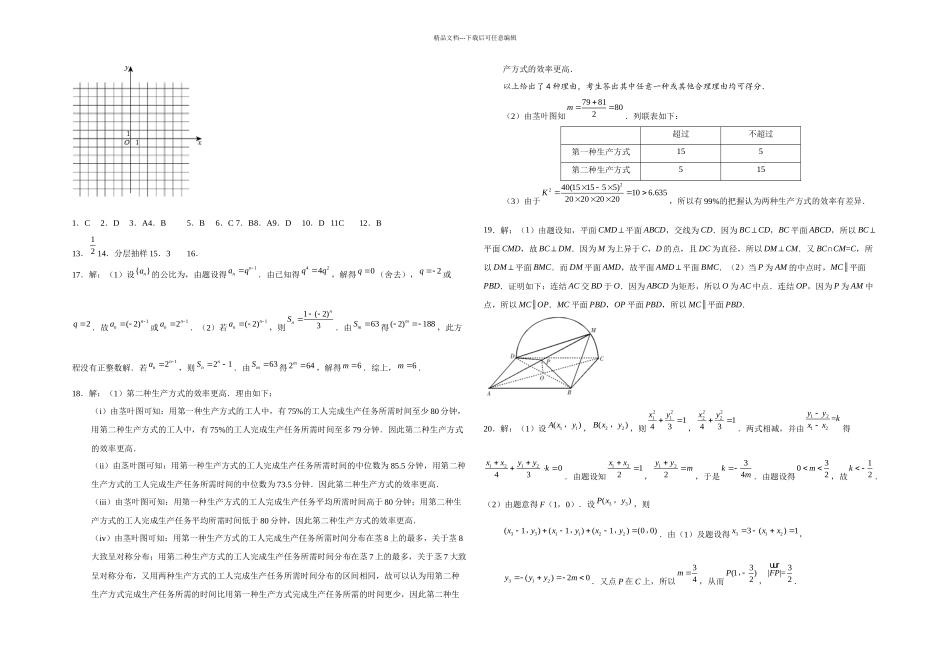 精品文档---下载后可任意编辑
y
1
O 1 x
1．C 2．D 3．A4．B 5．B 6．C 7．B8．A9．D 10．D 11C 12．B
13．1/2 14．分层抽样 15．3 16．
17．解：（1）设{a_n}的公比为，由题设得a_n q^{n-1}．由已知得q^4 4q^2，解得q 0（舍去），q 2或
q 2．故a_n (-2)^{n-1}或a_n 2^{n-1}．（2）若a_n (-2)^{n-1}，则S_n 1-(-2)^n/3．由S_m 63得(-2)^m -188，此方
程没有正整数解．若a_n 2^{n-1}，则S_n 2^n-1．由S_m 63得2^m 64，解得m 6．综上，m 6．
18．解：（1）第二种生产方式的效率更高．理由如下：
（i）由茎叶图可知：用第一种生产方式的工人中，有 75%的工人完成生产任务所需时间至少 80 分钟，
用第二种生产方式的工人中，有 75%的工人完成生产任务所需时间至多 79 分钟．因此第二种生产方式
的效率更高．
（ii）由茎叶图可知：用第一种生产方式的工人完成生产任务所需时间的中位数为 85.5 分钟，用第二种
生产方式的工人完成生产任务所需时间的中位数为 73.5 分钟．因此第二种生产方式的效率更高．
（iii）由茎叶图可知：用第一种生产方式的工人完成生产任务平均所需时间高于 80 分钟；用第二种生
产方式的工人完成生产任务平均所需时间低于 80 分钟，因此第二种生产方式的效率更高．
（iv）由茎叶图可知：用第一种生产方式的工人完成生产任务所需时间分布在茎 8 上的最多，关于茎 8
大致呈对称分布；用第二种生产方式的工人完成生产任务所需时间分布在茎 7 上的最多，关于茎 7 大致
呈对称分布，又用两种生产方式的工人完成生产任务所需时间分布的区间相同，故可以认为用第二种
生产方式完成生产任务所需的时间比用第一种生产方式完成生产任务所需的时间更少，因此第二种生
产方式的效率更高．
以上给出了 4 种理由，考生答出其中任意一种或其他合理理由均可得分．
（2）由茎叶图知m 79 81/2 80．列联表如下：
超过 不超过
第一种生产方式 15 5
第二种生产方式 5 15
（3）由于K^2 40(15 15 - 5 5)^2/20 20 20 20 10 6.635，所以有 99%的把握认为两种生产方式的效率有差异．
19．解：（1）由题设知，平面 CMD⊥平面 ABCD，交线为 CD．因为 BC⊥CD，BC 平面 ABCD，所以 BC⊥
平面 CMD，故 BC⊥DM．因为 M 为上异于 C，D 的点，且 DC 为直径，所以 DM⊥CM．又 BC∩CM=C，所
以 DM⊥平面 BMC．而 DM 平面 AMD，故平面 AMD⊥平面 BMC．（2）当 P 为 AM 的中点时，MC∥平面
PBD．证明如下：连结 AC 交 BD 于 O．因为 ABCD 为矩形，所以 O 为 AC 中点．连结 OP，因为 P 为 AM 中
点，所以 MC∥OP．MC 平面 PBD，OP 平面 PBD，所以 MC∥平面 PBD．
M
D P C
O
A B
20．解：（1）设A(x_1，y_1)，B(x_2，y_2)，则x_1^2/4 y_1^2/3 1，x_2^2/4 y_2^2/3 1．两式相减，并由y_1-y_2/x_1-x_2=k得
x_1 x_2/4 y_1 y_2/3 ·k 0．由题设知x_1 x_2/2 1，y_1 y_2/2 m，于是k -3/4m．由题设得0 m 3/2，故k -1/2．
（2）由题意得 F（1，0）．设P(x_3，y_3)，则
(x_3-1，y_3) (x_1-1，y_1) (x_2-1，y_2) (0，0)．由（1）及题设得x_3 3-(x_1 x_2) 1，
y_3 -(y_1 y_2) -2m 0．又点 P 在 C 上，所以m 3/4，从而P(1，-3/2)，|FP|=3/2．